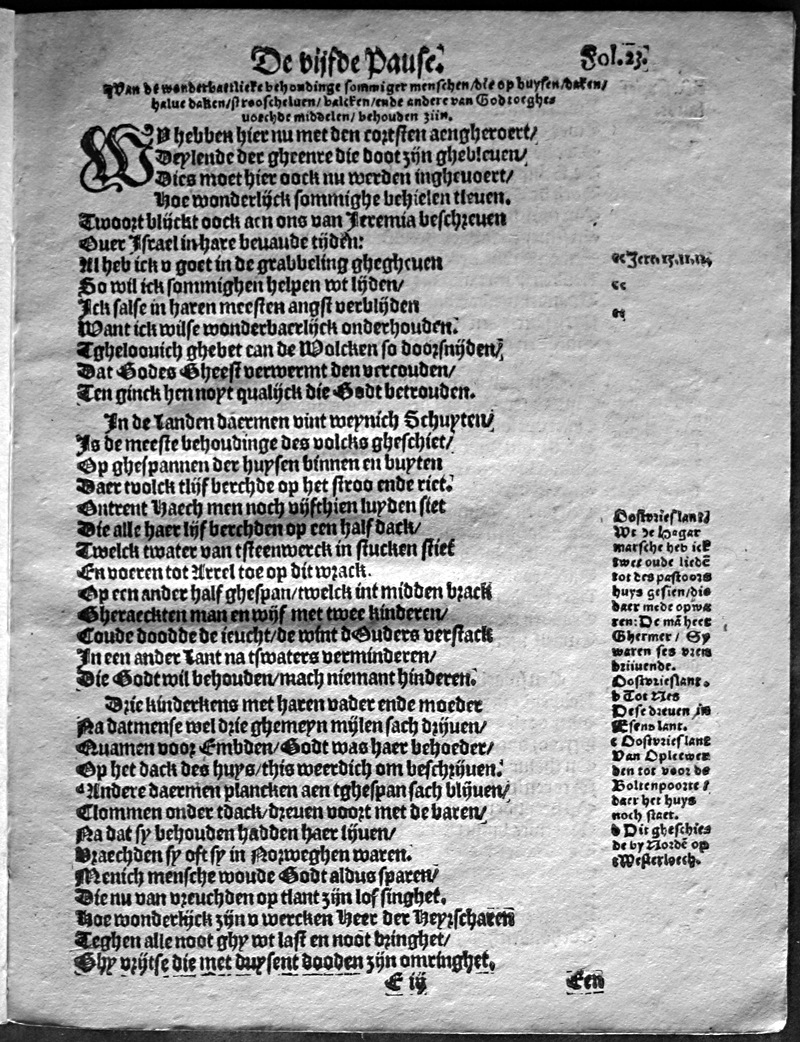 De vijfde Pause.
Fol. 23.
¶Van de wonderbaerlicke behoudinge sommiger menschen/die op huysen/daken/
halue daken/strooscheluen/balcken/ende andere van Godt
middelen/ behouden zijn.
WY hebben hier nu met den cortsten aengheroert/
Deylende der gheenre die doot zijn ghebleuen/
Dies moet hier oock nu werden ingheuoert/
Hoe wonderlijck sommighe behielen tleuen.
Twoort blijckt oock aen ons van Jeremia beschreuen
Ouer Israel in hare benaude tijden:
Al heb ick v goet in de grabbeling ghegheuen
So wil ick sommighen helpen wt lijden/
Ick salse in haren meesten angst verblijden
Want ick wilse wonderbaerlijck onderhouden.
Tgheloouich ghebet can de Wolcken so doorsnijden/
Dat Godes Gheest verwermt den vercouden/
Ten ginck hen noyt qualijck die Godt betrouden.
In de Landen daermen vint weynich Schuyten/
Is de meeste behoudinge des volcks gheschiet/
Op ghespannen der huysen binnen en buyten
Daer tvolck tlijf berchde op het stroo ende riet.
Ontrent Haech men noch vijfthien luyden siet
Die alle haer lijf berchden op een half dack/
Twelck twater van tsteenwerck in stucken stiet
En voeren tot Arrel toe op dit wrack.
Op een ander half ghespan/twelck int midden brack
Gheraeckten man en wijf met twee kinderen/
Coude doodde de ieucht/de wint dOuders verstack
In een ander Lant na tswaters verminderen/
Die Godt wil behouden/mach niemant hinderen.
Drie kinderkens met haren vader ende moeder
Na datmense wel drie ghemeyn mijlen sach drijuen/
Quamen voor Embden/Godt was haer behoeder/
Op het dack des huys/this weerdich om beschrijuen.
Andere daermen plancken aen tghespan sach blijuen/
Clommen onder tdack/dreuen voort met de baren/
Na dat sy behouden hadden haer lijuen/
Vraechden sy oft sy in Norweghen waren.
Menich mensche woude Godt aldus sparen/
Die nu van vreuchden op tlant zijn lof singhet.
Hoe wonderlijck zijn v wercken Heer der Heyrscharen
Teghen alle noot ghy wt last en noot bringhet/
Ghy vrijtse die met duysent dooden zijn omringhet.
E iij
Een
Jere. 15.11.
Oostvrieslant/
Wt de Hagar
marsche heb ick
twee oude liedē
tot des pastoors
huys gesien/die
daer mede opwa
ren: De mā heet
Ghermer/ Sy
waren ses vren
drijuende.
Oostvrieslant.
b Tot Nes
Dese dreuen in
Esens lant.
c Oostvrieslant
Van Opleewer
den tot voor de
Boltenpoorte/
daer het huys
noch staet.
d Dit gheschie
de by Nordē op
Westerloech.